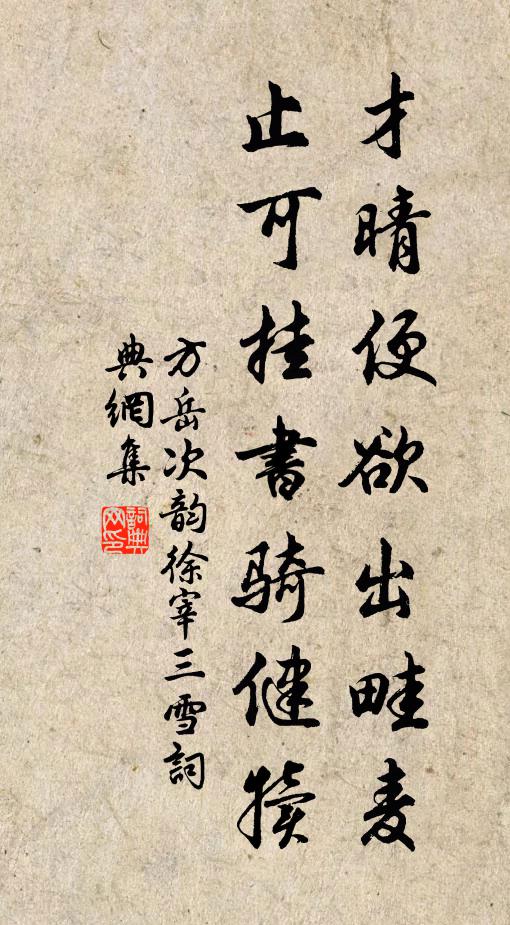 才晴便欲出畦麦
止可挂书骑健犊
方岳次韵徐宰三雪词
典網集
詞典网印